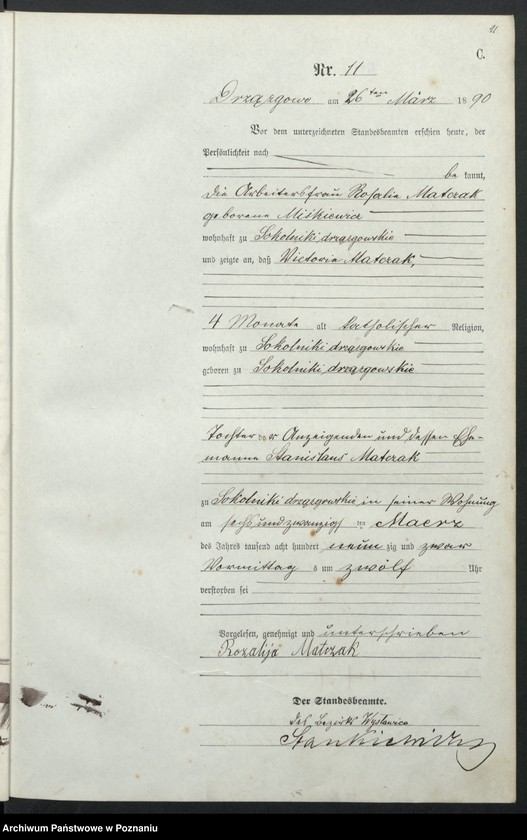 11
C.
Nr. 11
Drzązgowo am 26ten März 1890
Vor dem unterzeichneten Standesbeamten erschien heute, der
Persönlichkeit nach
be kannt,
die Arbeitersfrau Rosalie Matczak
geborene Miśkiewicz
wohnhaft zu Sokolniki drzązgowskie
und zeigte an, daß Victoria Matczak,
4 Monate alt katholischer Religion,
wohnhaft zu Sokolniki drzązgowskie
geboren zu Sokolniki drzązgowskie
Tochter der Anzeigenden und dessen Ehe-
manne Stanislaus Matczak
zu Sokolniki drzązgowskie in seiner Wohnung
am sechsundzwanzigsten Maerz
des Jahres tausend acht hundert neun zig und zwar
Vormittag s um zwölf Uhr
verstorben sei
Vorgelesen, genehmigt und unterschrieben
Rozalija Matczak
Der Standesbeamte.
des Bezirks
Stankiewicz
Archiwum Państwowe w Poznaniu